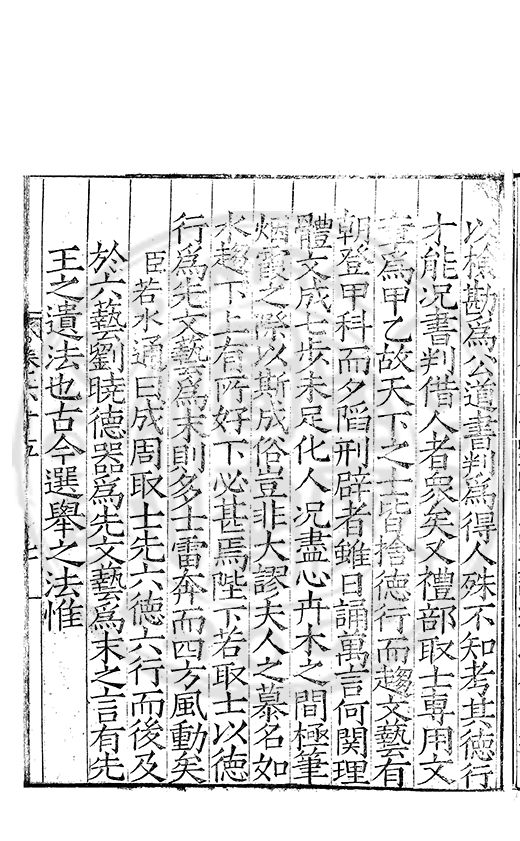 以檢勘爲公道書判爲得人殊不知考其德行
才能况書判借人者衆矣又禮部取士專用文
章爲甲乙故天下之士皆捨德行而趨文藝有
朝登甲科而夕䧟刑辟者雖日誦萬言何関理
體文成七步未足化人况盡心卉木之間極筆
烟霞之際以斯成俗豈非大謬夫人之慕名如
水趨下上有所好下必甚焉陛下若取士以德
行爲先文藝爲末則多士雷奔而四方風動矣
臣若水通曰成周取士先六德六行而後及
於六藝劉曉德器爲先文藝爲末之言有先
王之遺法也古今選舉之法惟
卷六十五